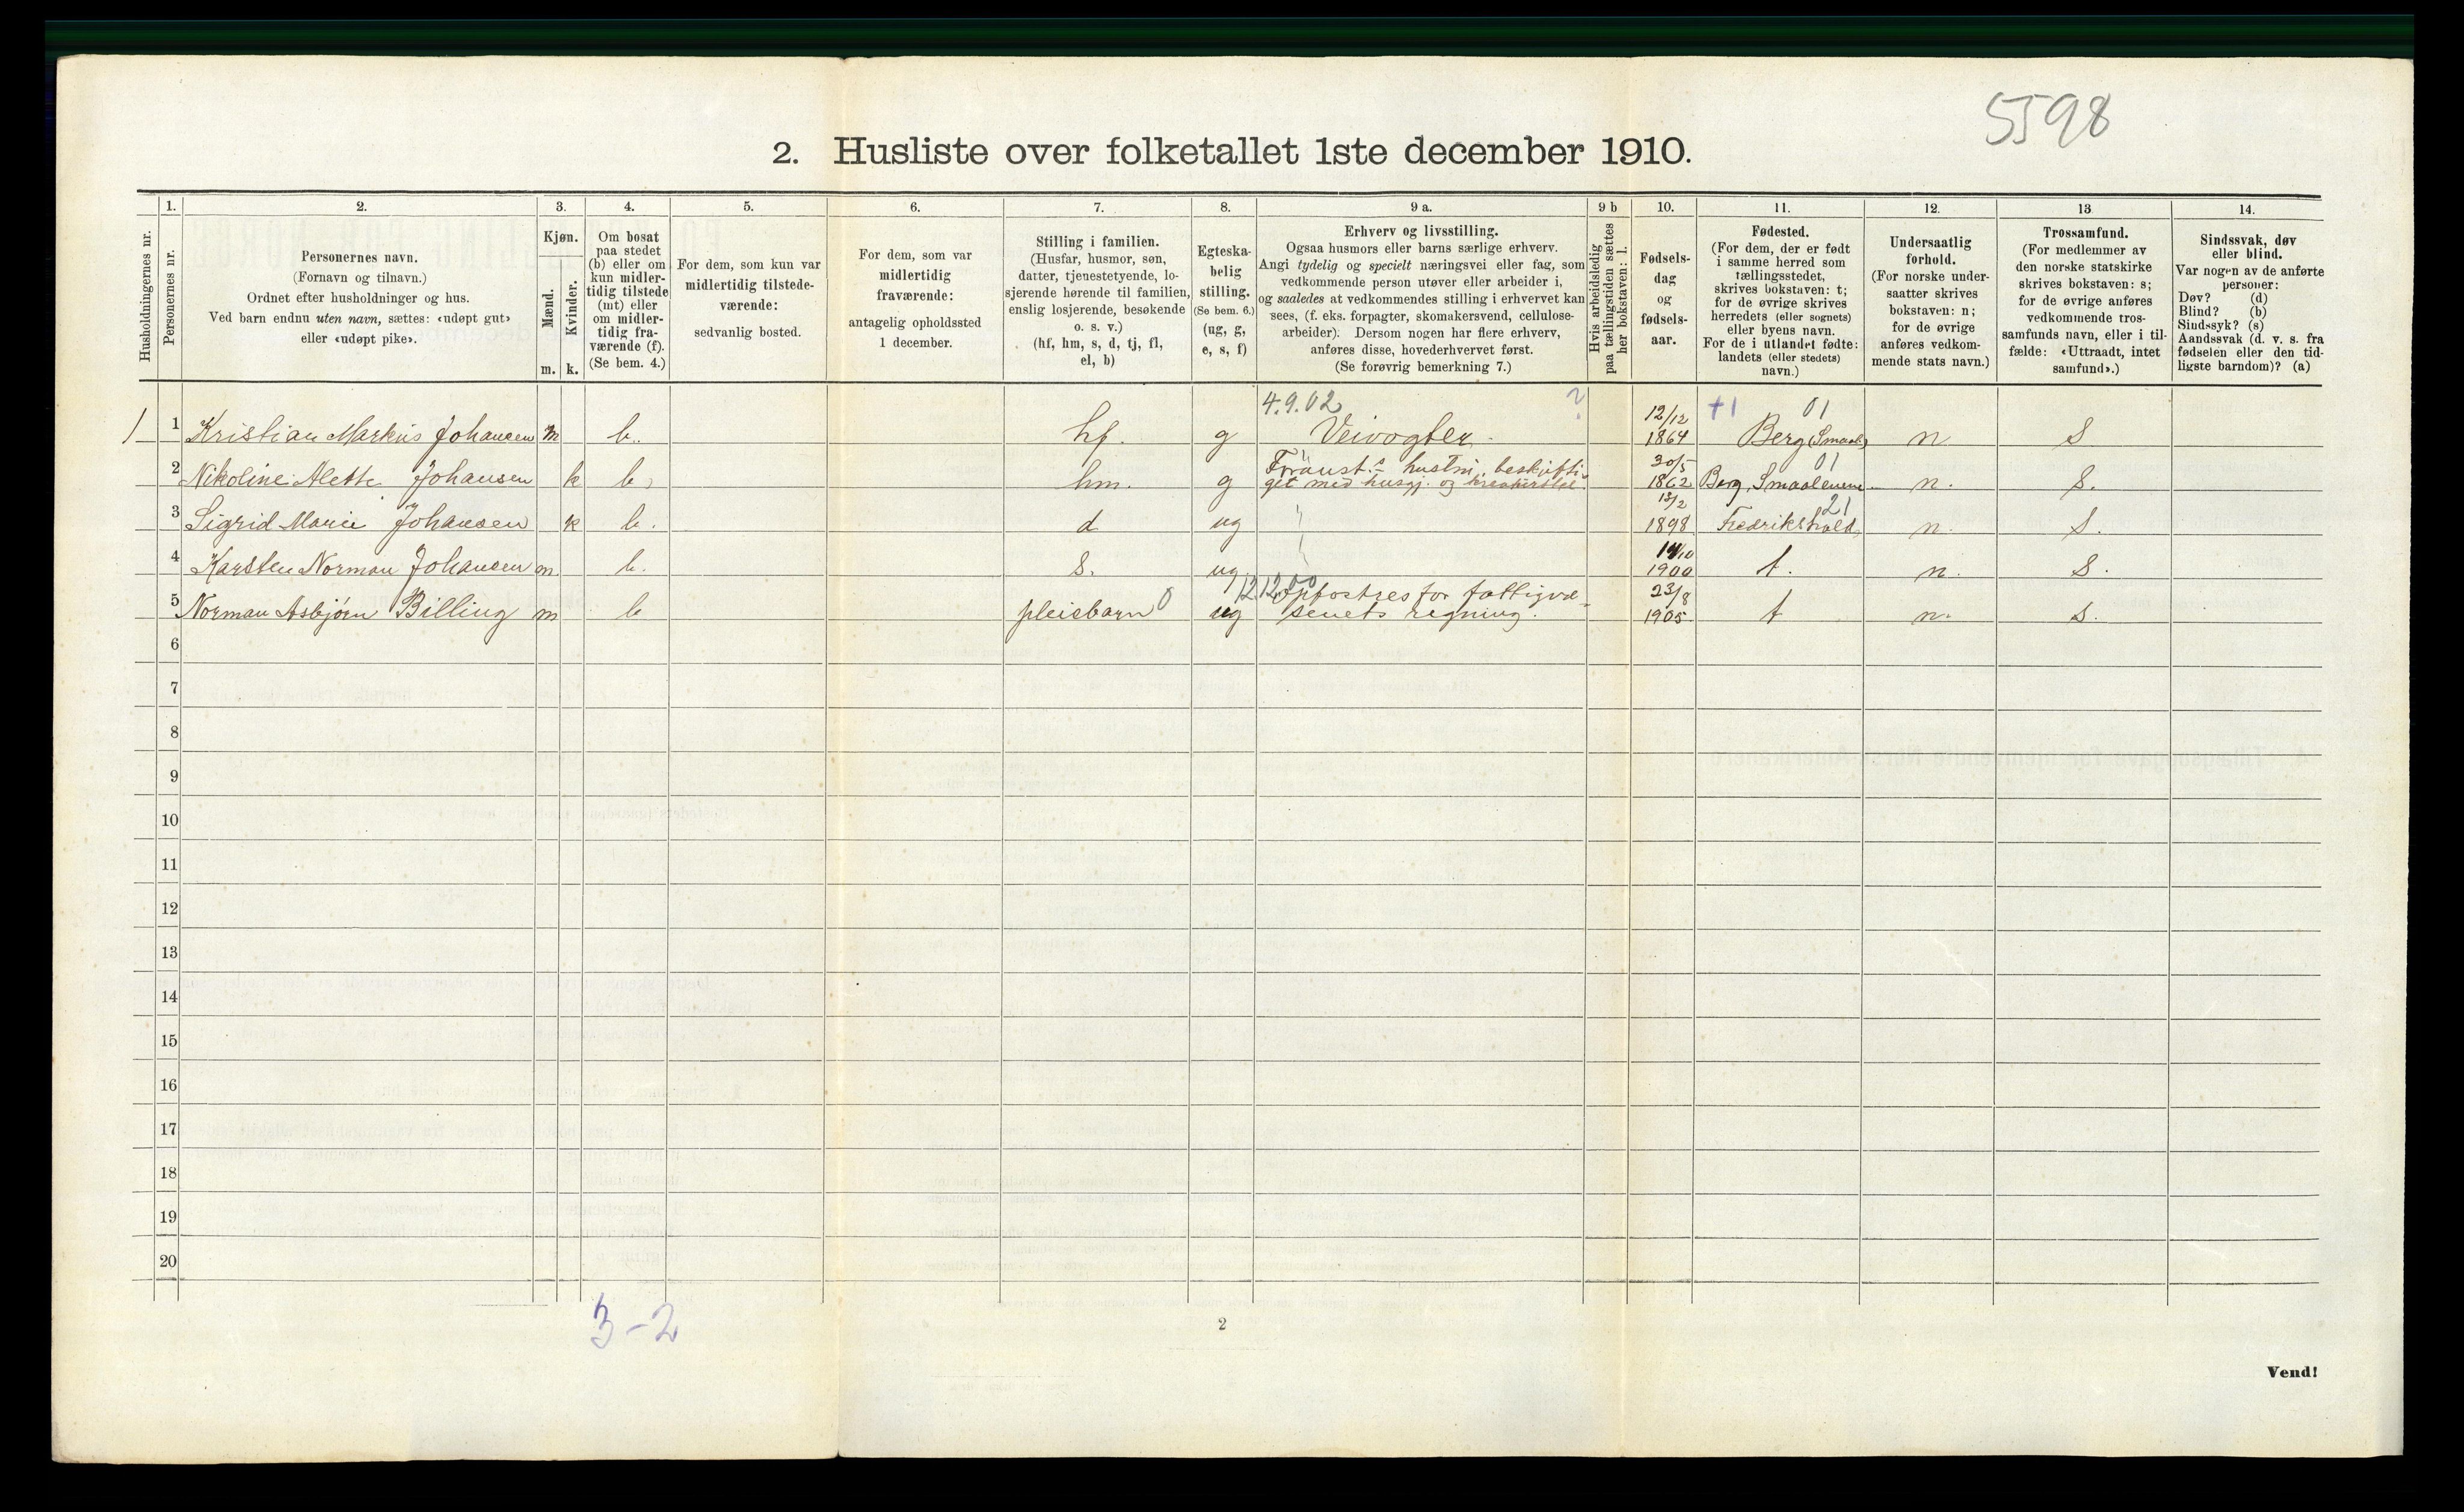 5598
2. Husliste over folketallet 1ste december 1910.
Husholdningernes nr.
1.
Personernes nr.
2.
Personernes navn.
(Fornavn og tilnavn.)
Ordnet efter husholdninger og hus.
Ved barn endnu uten navn, sættes: «udøpt gut»
eller «udøpt pike».
3.
Kjøn.
Mænd.
Kvinder.
m. k.
4.
Om bosat
paa stedet
(b) eller om
kun midler-
tidig tilstede
(mt) eller
om midler-
tidig fra-
værende (f).
(Se bem. 4.)
5.
For dem, som kun var
midlertidig tilstede-
værende:
sedvanlig bosted.
6.
For dem, som var
midlertidig
fraværende:
antagelig opholdssted
1 december.
7.
Stilling i familien.
(Husfar, husmor, søn,
datter, tjenestetyende, lo-
sjerende hørende til familien,
enslig losjerende, besøkende
o. s. v.)
(hf, hm, s, d, tj, fl,
el, b)
8.
Egteska-
belig
stilling.
(Se bem. 6.)
(ug, g,
e, s, f)
9 a.
Erhverv og livsstilling.
Ogsaa husmors eller barns særlige erhverv.
Angi tydelig og specielt næringsvei eller fag, som
vedkommende person utøver eller arbeider i,
og saaledes at vedkommendes stilling i erhvervet kan
sees, (f. eks. forpagter, skomakersvend, cellulose-
arbeider). Dersom nogen har flere erhverv,
anføres disse, hovederhvervet først.
(Se forøvrig bemerkning 7.)
9 b
Hvis arbeidsledig
paa tællingstiden sættes
her bokstaven: l.
10.
Fødsels-
dag
og
fødsels-
aar.
11.
Fødested.
(For dem, der er født
i samme herred som
tællingsstedet,
skrives bokstaven: t;
for de øvrige skrives
herredets (eller sognets)
eller byens navn.
For de i utlandet fødte:
landets (eller stedets)
navn.)
12.
Undersaatlig
forhold.
(For norske under-
saatter skrives
bokstaven: n;
for de øvrige
anføres vedkom-
mende stats navn.)
13
Trossamfund.
(For medlemmer av
den norske statskirke
skrives bokstaven: s;
for de øvrige anføres
vedkommende tros-
samfunds navn, eller i til-
fælde: «Uttraadt, intet
samfund».)
14.
Sindssvak, døv
eller blind.
Var nogen av de anførte
personer:
Døv? (d)
Blind? (b)
Sindssyk? (s)
Aandssvak (d. v. s. fra
fødselen eller den tid-
ligste barndom)? (a)
4.9.02 ? 12/12 +1 01
1 1 Kristian Markus Johansen m b. hf. g Veivogter. 1864 Berg (Smaal) n S
30/5 01
2 Nikoline Alette Johansen k b hm. g hustru, beskjefti-
get med husgj. og 1862 Berg, Smaalenene n. S.
13/2 21
3 Sigrid Marie Johansen k b. d ug 1898 Fredrikshald n. S.
14/10
4 Karsten Norman Johansen m b. s. ug. 1900 t. n. S.
0 1212,00 Opfostres for fattigvæ- 23/8
5 Norman Asbjørn Billing m b pleiebarn ug senets regning. 1905 t n. S.
6
7
8
9
10
11
12
13
14
15
16
17
18
19
20
3-2
2
Vend!